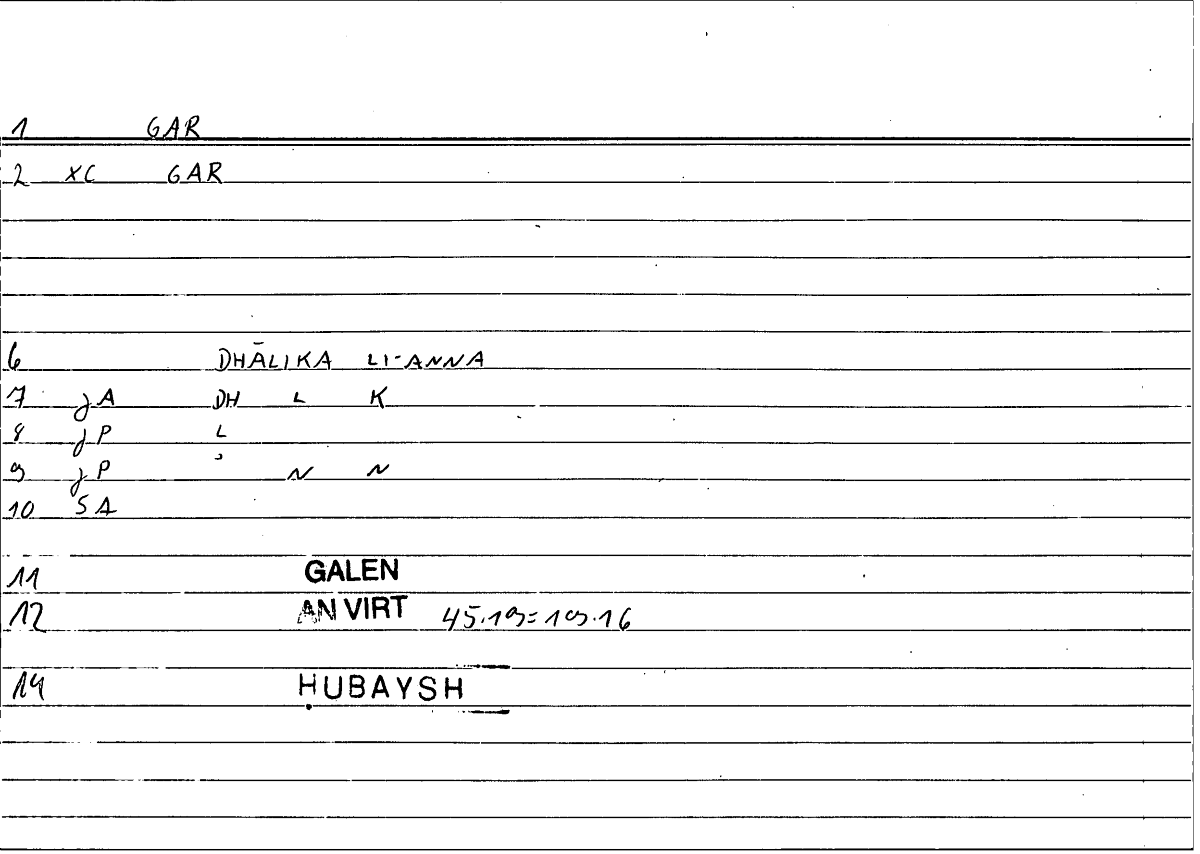 1 GAR
2 XC GAR
6 DHĀLIKA LI-ANNA
7 jA DH L K
8 jP L
9 jP ʾ N N
10 SA
11 GALEN
12 AN VIRT 45.19=19.16
14 ḤUBAYSH